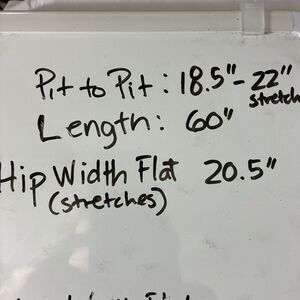 Pit to Pit: 18.5"- 22"
stretch
Length: 60"
Hip Width Flat 20.5"
(stretches)